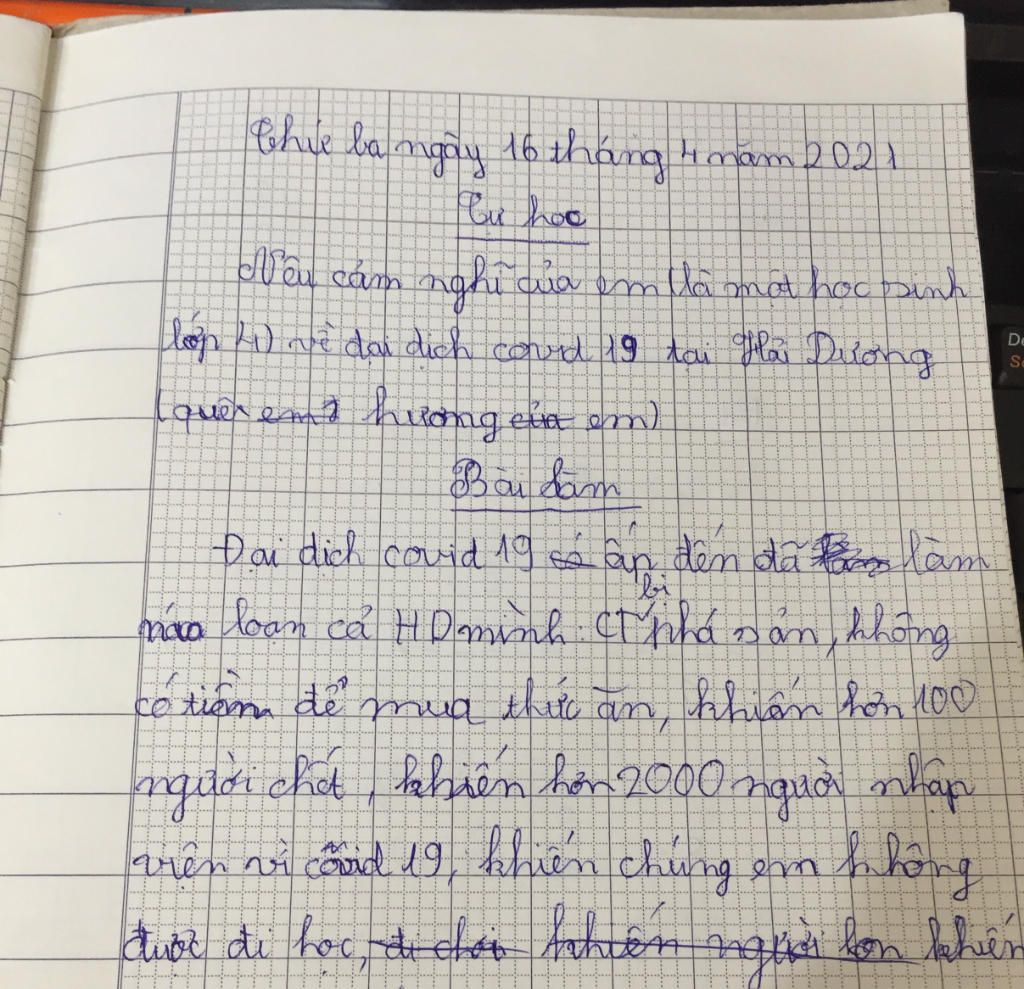 Thứ ba ngày 16 tháng 4 năm 2021
Tự học
Nêu cảm nghĩ của em (là một học sinh
lớp 4) về đại dịch covid 19 tại Hải Dương
(quê em hương của em)
Bài làm
Đại dịch covid 19 có ập đến đã làm
náo loạn cả HD mình: CT bị phá sản, không
có tiền để mua thức ăn, khiến hơn 100
người chết, khiến hơn 2000 người nhập
viện vì covid 19, khiến chúng em không
được đi học, đi chơi khiến người lon khiến